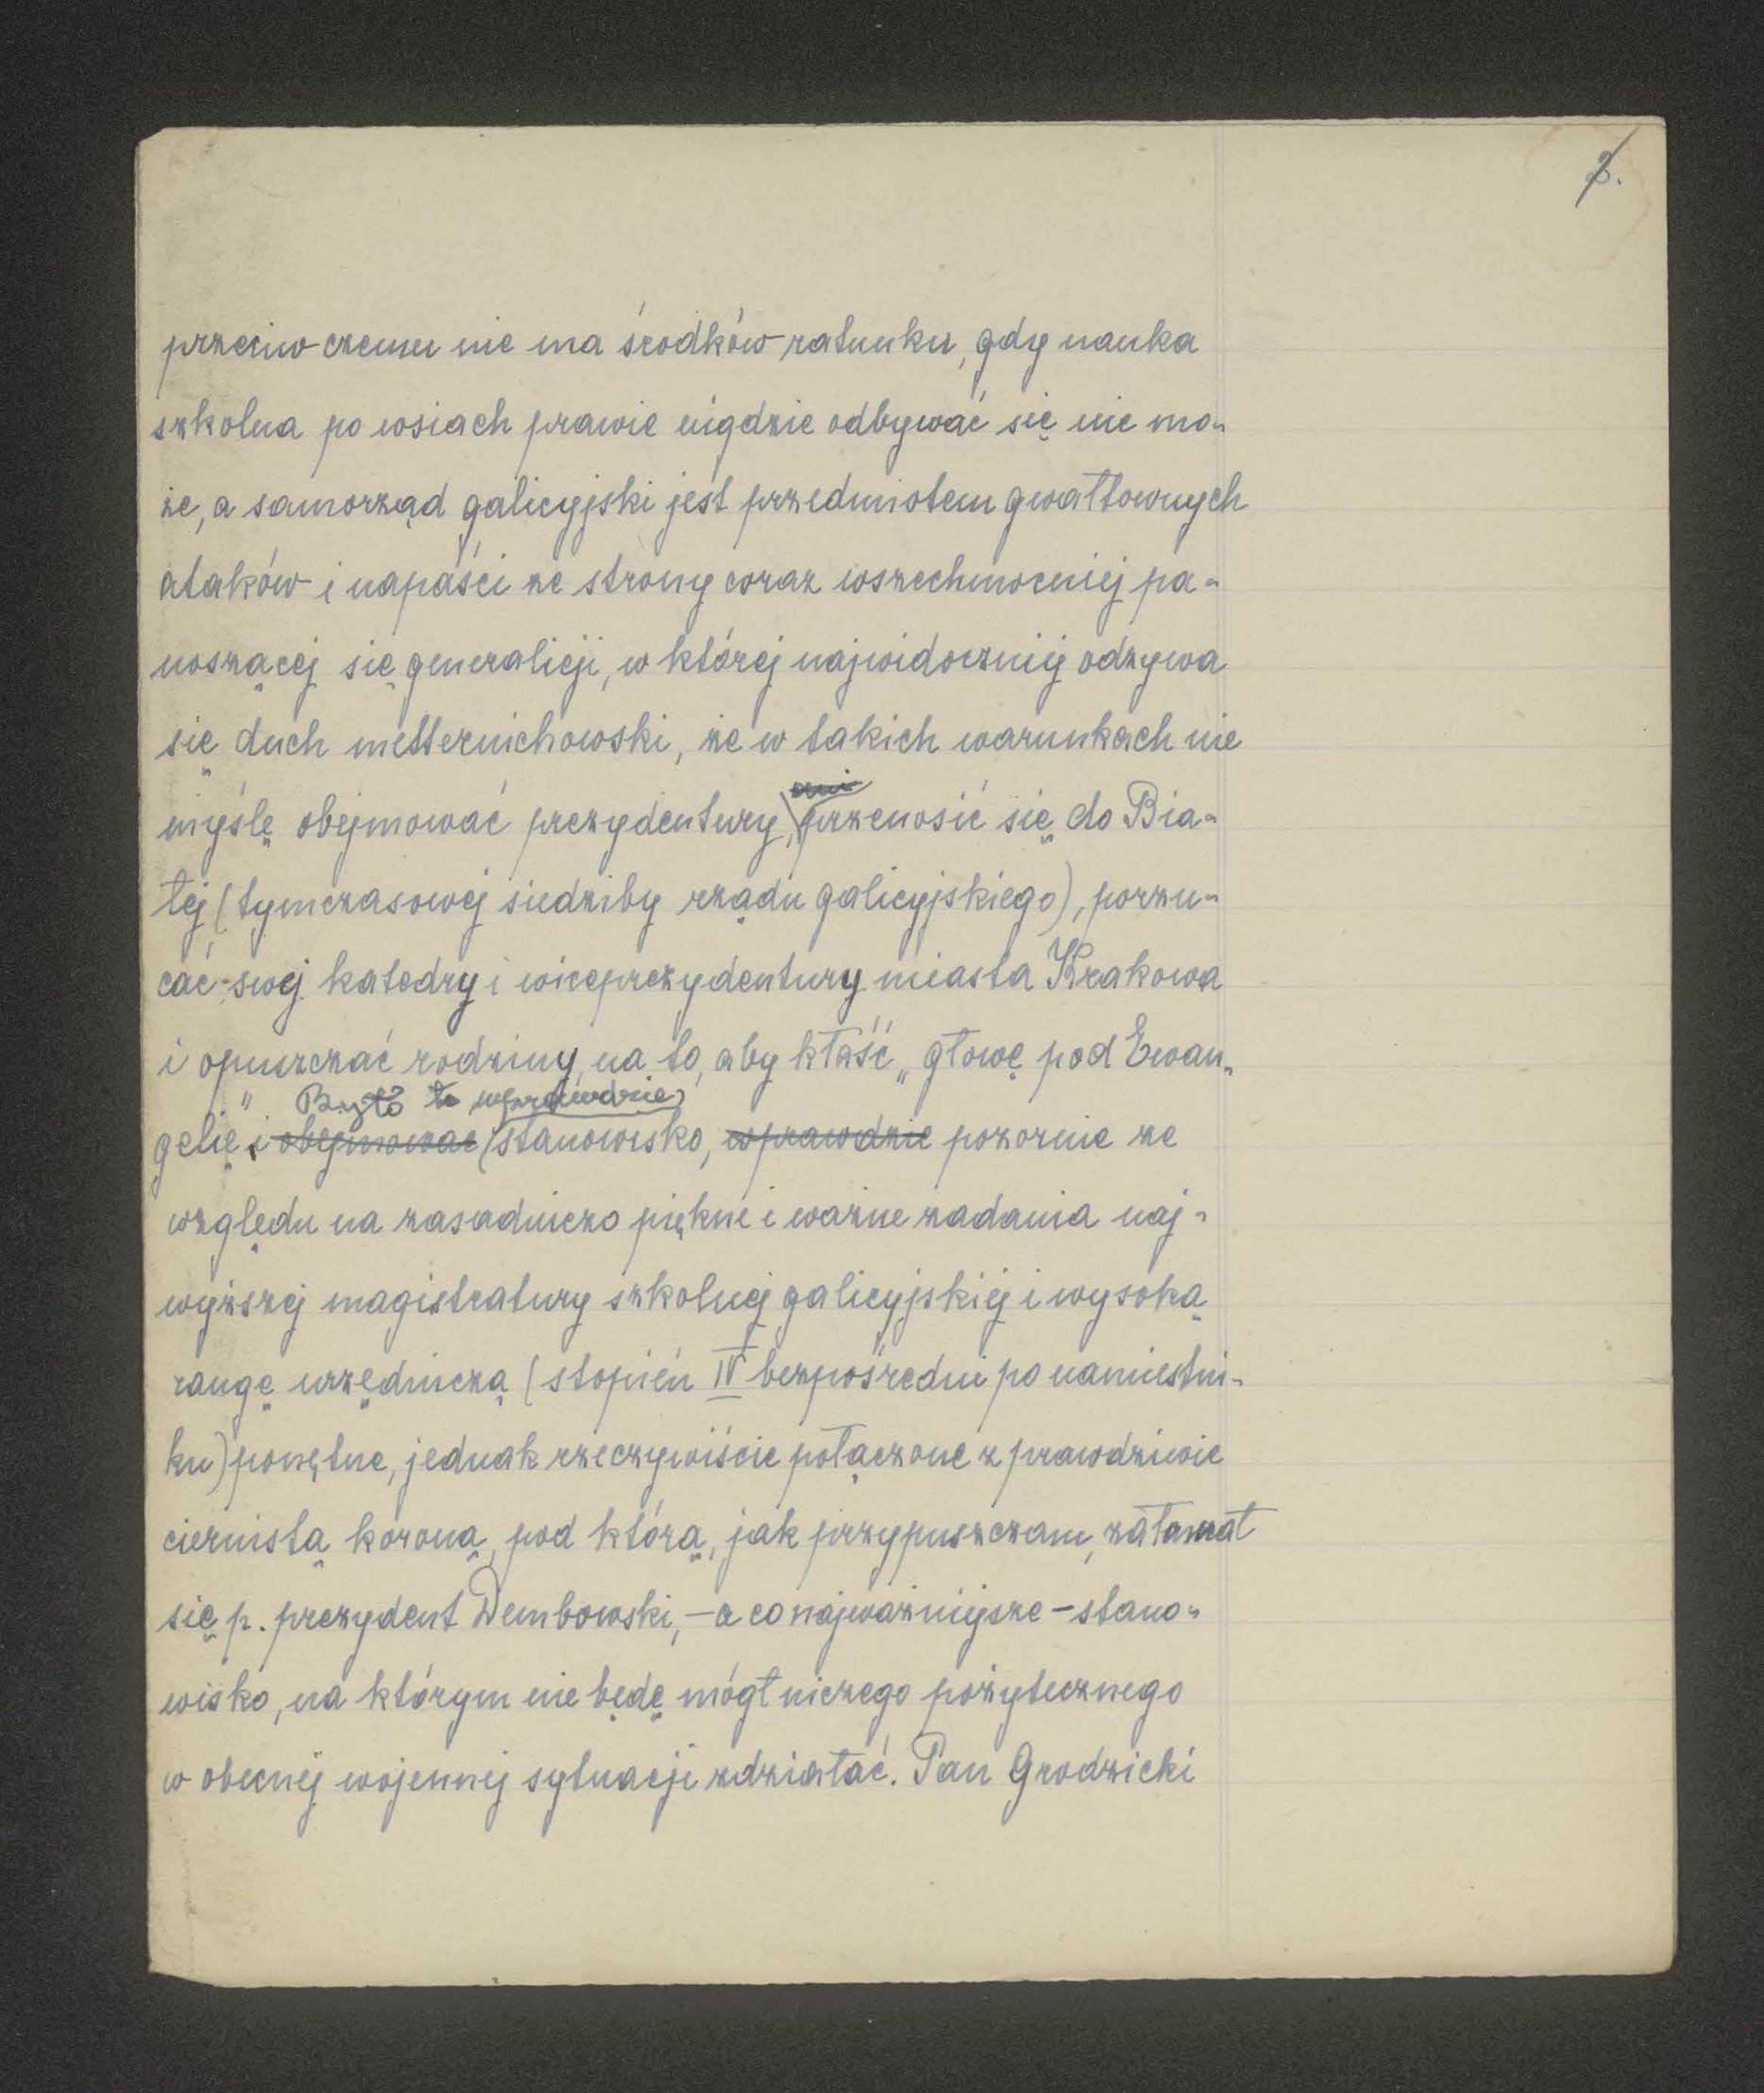 2.
przeciw czemu nie ma środków ratunku, gdy nauka
szkolna po wsiach prawie nigdzie odbywać się nie mo-
że, a samorząd galicyjski jest przedmiotem gwałtownych
ataków i napaści ze strony coraz wszechmocniej pa-
noszącej się generalicji, w której najwidoczniej odzywa
się duch metternichowski, że w takich warunkach nie
ani
myślę obejmować prezydentury, przenosić się do Bia-
łej (tymczasowej siedziby rządu galicyjskiego), porzu-
cać swej katedry i wiceprezydentury miasta Krakowa
i opuszczać rodziny, na to, aby kłaść „głowę pod Ewan-
Było to wprawdzie
gelię" i obejmować stanowisko, wprawdzie pozornie ze
względu na zasadniczo piękne i ważne zadania naj-
wyższej magistratury szkolnej galicyjskiej i wysoką
rangę urzędniczą (stopień IV bezpośredni po namiestni-
ku) ponętne, jednak rzeczywiście połączone z prawdziwie
ciernistą koroną, pod którą, jak przypuszczam, załamał
się p. prezydent Dembowski, – a co najważniejsze – stano-
wisko, na którym nie będę mógł niczego pożytecznego
w obecnej wojennej sytuacji zdziałać. Pan Grodzicki